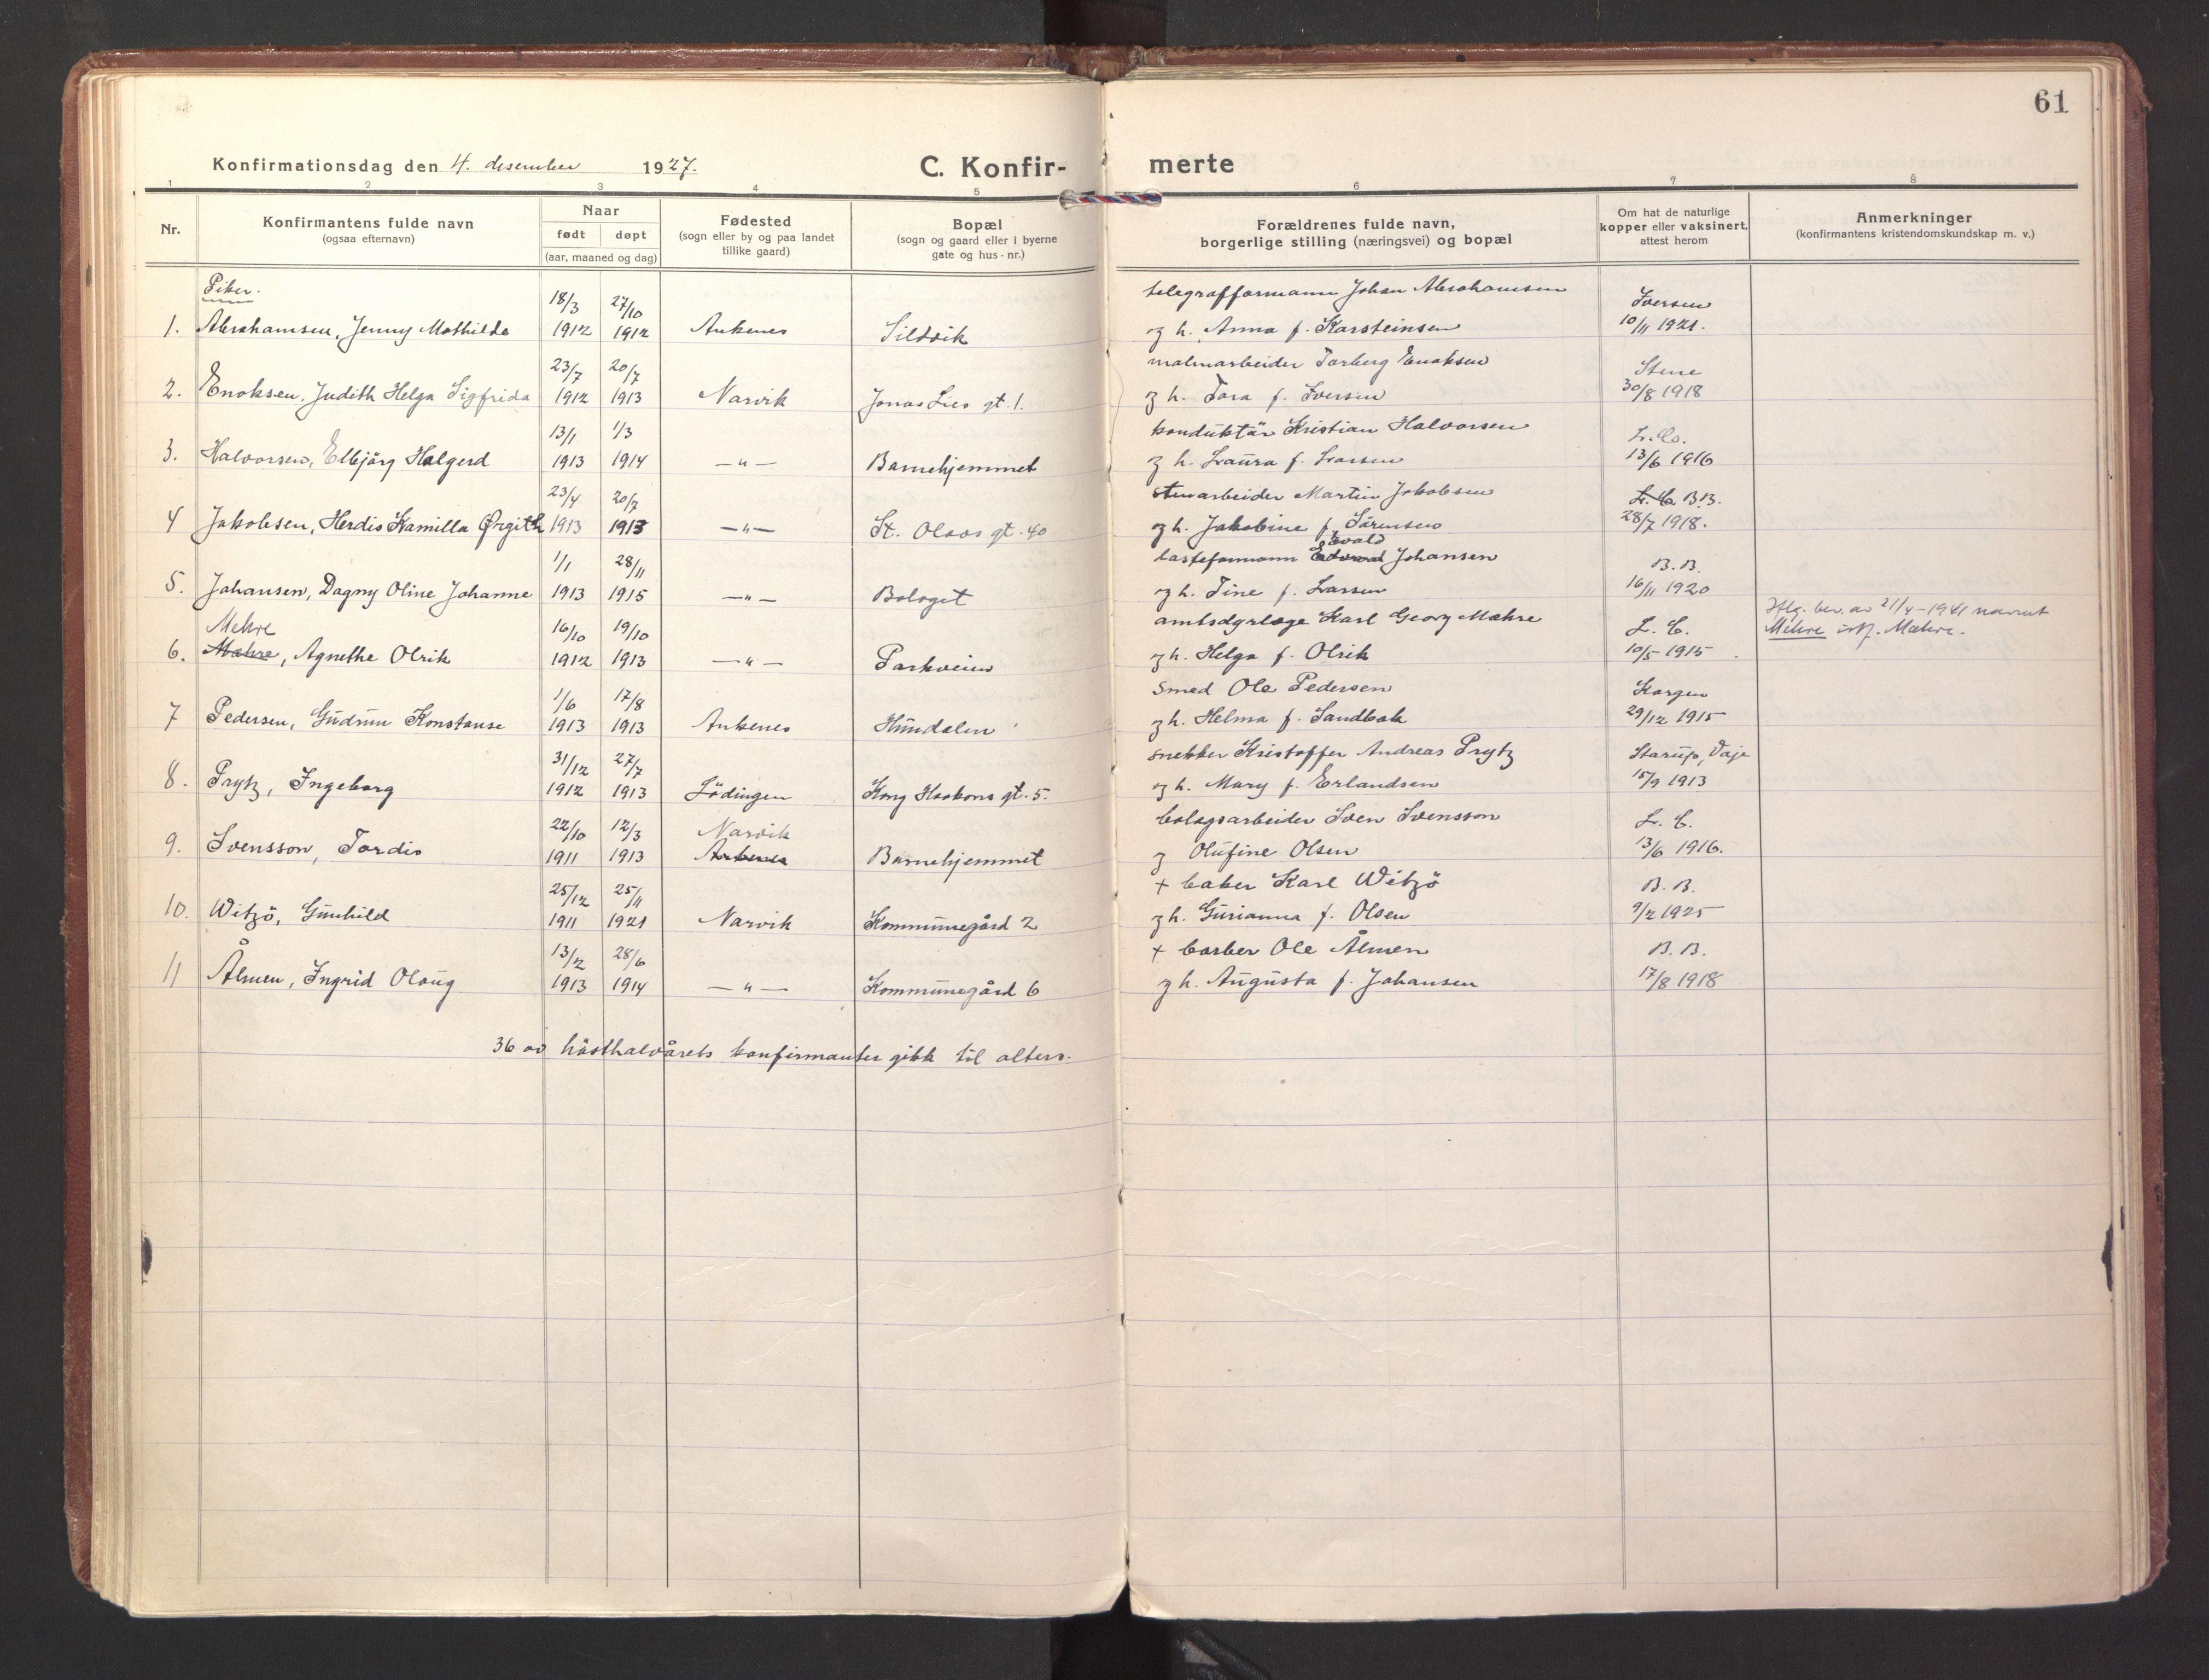 61
Konfirmationsdag den 4. desember 1927.
C. Konfirmerte
1 2 3 4 5 6 7 8
Nr.
Konfirmantens fulde navn
(ogsaa efternavn)
Naar
født døpt
(aar, maaned og dag)
Fødested
(sogn eller by og paa landet
tillike gaard)
Bopæl
(sogn og gaard eller i byerne
gate og hus-nr.)
Forældrenes fulde navn,
borgerlige stilling (næringsvei) og bopæl
Om hat de naturlige
kopper eller vaksinert,
attest herom
Anmerkninger
(konfirmantens kristendomskundskap m. v.)
Piker.
18/3 27/10 telegrafformann Johan Abrahamsen Iversen
1. Abrahamsen, Jenny Mathilde 1912 1912 Ankenes Sildvik og h. Anna f. Karsteinsen 10/11 1921.
23/7 20/7 malmarbeider Torberg Enoksen Stene
2. Enoksen, Judith Helga Sigfrida 1912 1913 Narvik Jonas Lies gt. 1. og h. Tora f. Iversen 30/8 1918
13/1 1/3 konduktör Kristian Halvorsen
3. Halvorsen, Ellbjörg Halgerd 1913 1914 —"— Barnehjemmet og h. Laura f. Larsen 13/6 1916
23/4 20/7 stuarbeider Martin Jakobsen L. C. B.B.
4 Jakobsen, Herdis Kamilla Ørgith 1913 1913 —"— St. Olavs gt. 40 og h. Jakobine f. Sörensen 28/7 1918.
Evald
1/1 28/11 lasteformann Edvard Johansen B. B.
5. Johansen, Dagny Oline Johanne 1913 1915 —"— Bolaget og h. Tine f. Larsen 16/11 1920
Mehre 16/10 19/10 amtsdyrlæge Karl Georg Mæhre L. C. Iflg. bev. av 21/4-1941 navnet
6. Mæhre, Agnethe Olrik 1912 1913 —"— Parkveien og h. Helga f. Olrik 10/5 1915 Mehre istf. Mæhre.
1/6 17/8 smed Ole Pedersen Korgen
7 Pedersen, Gudrun Konstanse 1913 1913 Ankenes Hundalen og h. Helma f. Sandbak 29/12 1915
31/12 27/7 snekker Kristoffer Andreas Prytz Starup, Vaje
8. Prytz, Ingeborg 1912 1913 Lödingen Kong Haakons gt. 5. og h. Mary f. Erlandsen 15/9 1913
22/10 12/3 Narvik bolagsarbeider Sven Svensson L. C.
9. Svensson, Tordis 1911 1913 Ankenes Barnehjemmet og Olufine Olsen 13/6 1916.
25/12 25/11 + baker Karl Witzö B. B.
10. Witzö, Gunhild 1911 1921 Narvik Kommunegård 2 og h. Gurianna f. Olsen 9/2 1925
13/2 28/6 + barber Ole Ålmen B. B.
11 Ålmen, Ingrid Olaug 1913 1914 —"— Kommunegård 6 og h. Augusta f. Johansen 17/8 1918
36 av hösthalvårets konfirmanter gikk til alters.